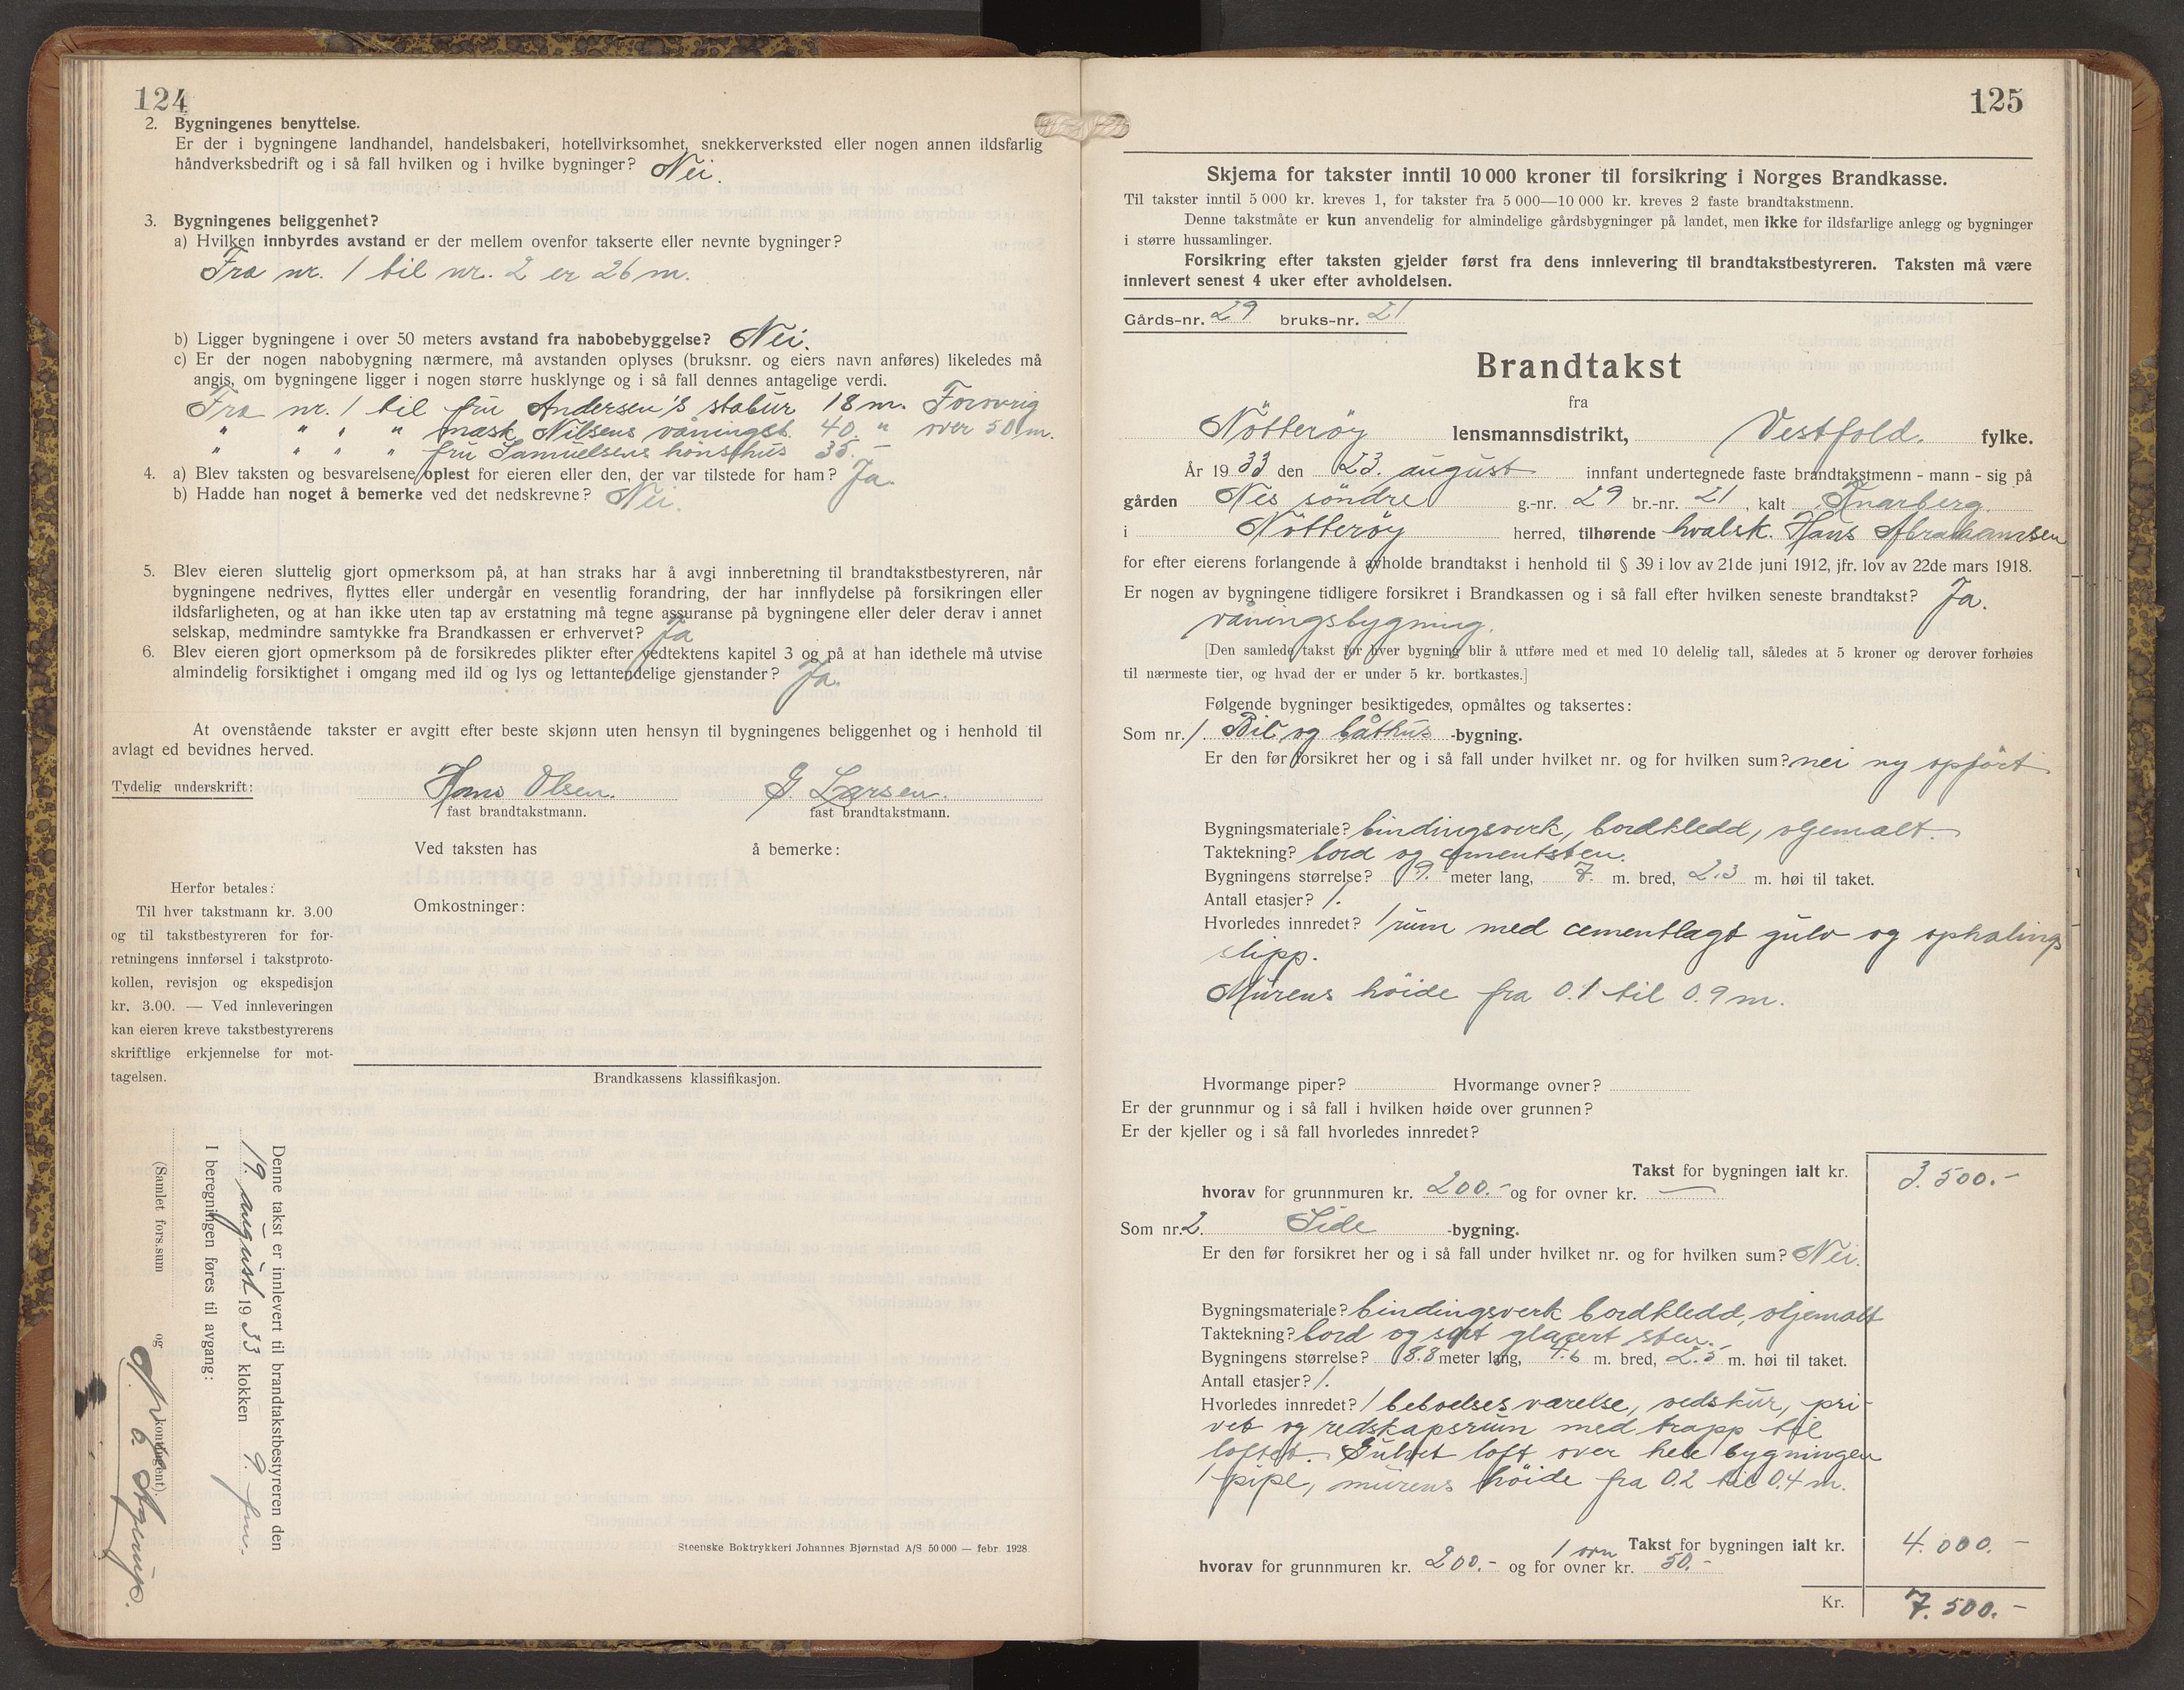 124
2. Bygningenes benyttelse.
Er der i bygningene landhandel, handelsbakeri, hotellvirksomhet, snekkerverksted eller nogen annen ildsfarlig
håndverksbedrift og i så fall hvilken og i hvilke bygninger? Nei.
3. Bygningenes beliggenhet?
a) Hvilken innbyrdes avstand er der mellem ovenfor takserte eller nevnte bygninger?
Fra nr. 1 til nr. 2 er 26 m.
b) Ligger bygningene i over 50 meters avstand fra nabobebyggelse? Nei.
c) Er der nogen nabobygning nærmere, må avstanden oplyses (bruksnr. og eiers navn anføres) likeledes må
angis, om bygningene ligger i nogen større husklynge og i så fall dennes antagelige verdi.
Fra nr. 1 til fru Andersen's stabur 18 m. Forøvrig
" " " " mask. Nilsens våningsb. 40. " over 50 m.
" " " " fru Samuelsens hønsehus 35. –
4. a) Blev taksten og besvarelsene oplest for eieren eller den, der var tilstede for ham? Ja.
b) Hadde han noget å bemerke ved det nedskrevne? Nei.
5. Blev eieren sluttelig gjort opmerksom på, at han straks har å avgi innberetning til brandtakstbestyreren, når
bygningene nedrives, flyttes eller undergår en vesentlig forandring, der har innflydelse på forsikringen eller
ildsfarligheten, og at han ikke uten tap av erstatning må tegne assuranse på bygningene eller deler derav i annet
selskap, medmindre samtykke fra Brandkassen er erhvervet? Ja
6. Blev eieren gjort opmerksom på de forsikredes plikter efter vedtektens kapitel 3 og på at han idethele må utvise
almindelig forsiktighet i omgang med ild og lys og lettantendelige gjenstander? Ja.
At ovenstående takster er avgitt efter beste skjønn uten hensyn til bygningenes beliggenhet og i henhold til
avlagt ed bevidnes herved.
Tydelig underskrift: Hans Olsen. G. Larsen.
fast brandtakstmann. fast brandtakstmann.
Ved taksten has å bemerke:
Omkostninger:
Herfor betales:
Til hver takstmann kr. 3.00
og til takstbestyreren for for-
retningens innførsel i takstproto-
kollen, revisjon og ekspedisjon
kr. 3.00. — Ved innleveringen
kan eieren kreve takstbestyrerens
skriftlige erkjennelse for mot-
tagelsen.
Brandkassens klassifikasjon.
Denne takst er innlevert til brandtakstbestyreren den
19. august 1933 klokken 9. fm.
I beregningen føres til avgang:
(Samlet fors.sum og kontingent).
Steenske Boktrykkeri Johannes Bjørnstad A/S 50 000 — febr. 1928.
125
Skjema for takster inntil 10 000 kroner til forsikring i Norges Brandkasse.
Til takster inntil 5 000 kr. kreves 1, for takster fra 5 000—10 000 kr. kreves 2 faste brandtakstmenn.
Denne takstmåte er kun anvendelig for almindelige gårdsbygninger på landet, men ikke for ildsfarlige anlegg og bygninger
i større hussamlinger.
Forsikring efter taksten gjelder først fra dens innlevering til brandtakstbestyreren. Taksten må være
innlevert senest 4 uker efter avholdelsen.
Gårds-nr. 29 bruks-nr. 21
Brandtakst
fra
Nötteröy lensmannsdistrikt, Vestfold. fylke.
År 1933 den 23. august innfant undertegnede faste brandtakstmenn - mann - sig på
gården Nes söndre g.-nr. 29 br.-nr. 21, kalt Knarberg.
i Nötteröy herred, tilhørende hvalsk. Hans Abrahamsen
for efter eierens forlangende å avholde brandtakst i henhold til § 39 i lov av 21de juni 1912, jfr. lov av 22de mars 1918.
Er nogen av bygningene tidligere forsikret i Brandkassen og i så fall efter hvilken seneste brandtakst? Ja.
våningsbygning.
[Den samlede takst for hver bygning blir å utføre med et med 10 delelig tall, således at 5 kroner og derover forhøies
til nærmeste tier, og hvad der er under 5 kr. bortkastes.]
Følgende bygninger besiktigedes, opmåltes og taksertes:
Som nr. 1. Bil og båthus -bygning.
Er den før forsikret her og i så fall under hvilket nr. og for hvilken sum? nei ny opført
Bygningsmateriale? bindingsverk, bordkledd, oljemalt.
Taktekning? bord og cementsten.
Bygningens størrelse? 9. meter lang, 7. m. bred, 2.3 m. høi til taket.
Antall etasjer? 1.
Hvorledes innredet? 1 rum med cementlagt gulv og ophalings
slipp.
Murens høide fra 0.1 til 0.9 m.
Hvormange piper? Hvormange ovner?
Er der grunnmur og i så fall i hvilken høide over grunnen?
Er der kjeller og i så fall hvorledes innredet?
Takst for bygningen ialt kr. 3.500.-
hvorav for grunnmuren kr. 200.- og for ovner kr. —
Som nr. 2. Side -bygning.
Er den før forsikret her og i så fall under hvilket nr. og for hvilken sum? Nei.
Bygningsmateriale? bindingsverk bordkledd, oljemalt
Taktekning? bord og sort glasert sten.
Bygningens størrelse? 8.8 meter lang, 4.6 m. bred, 2.5 m. høi til taket.
Antall etasjer? 1.
Hvorledes innredet? 1 beboelsesværelse, vedskur, pri-
vet og redskapsrum med trapp til
loftet. Gulvet loft over hele bygningen
1 pipe, murens høide fra 0.2 til 0.4 m.
Takst for bygningen ialt kr. 4.000.-
hvorav for grunnmuren kr. 200.- og for 1 ovn ovner kr. 50.-
Kr. 7.500.-